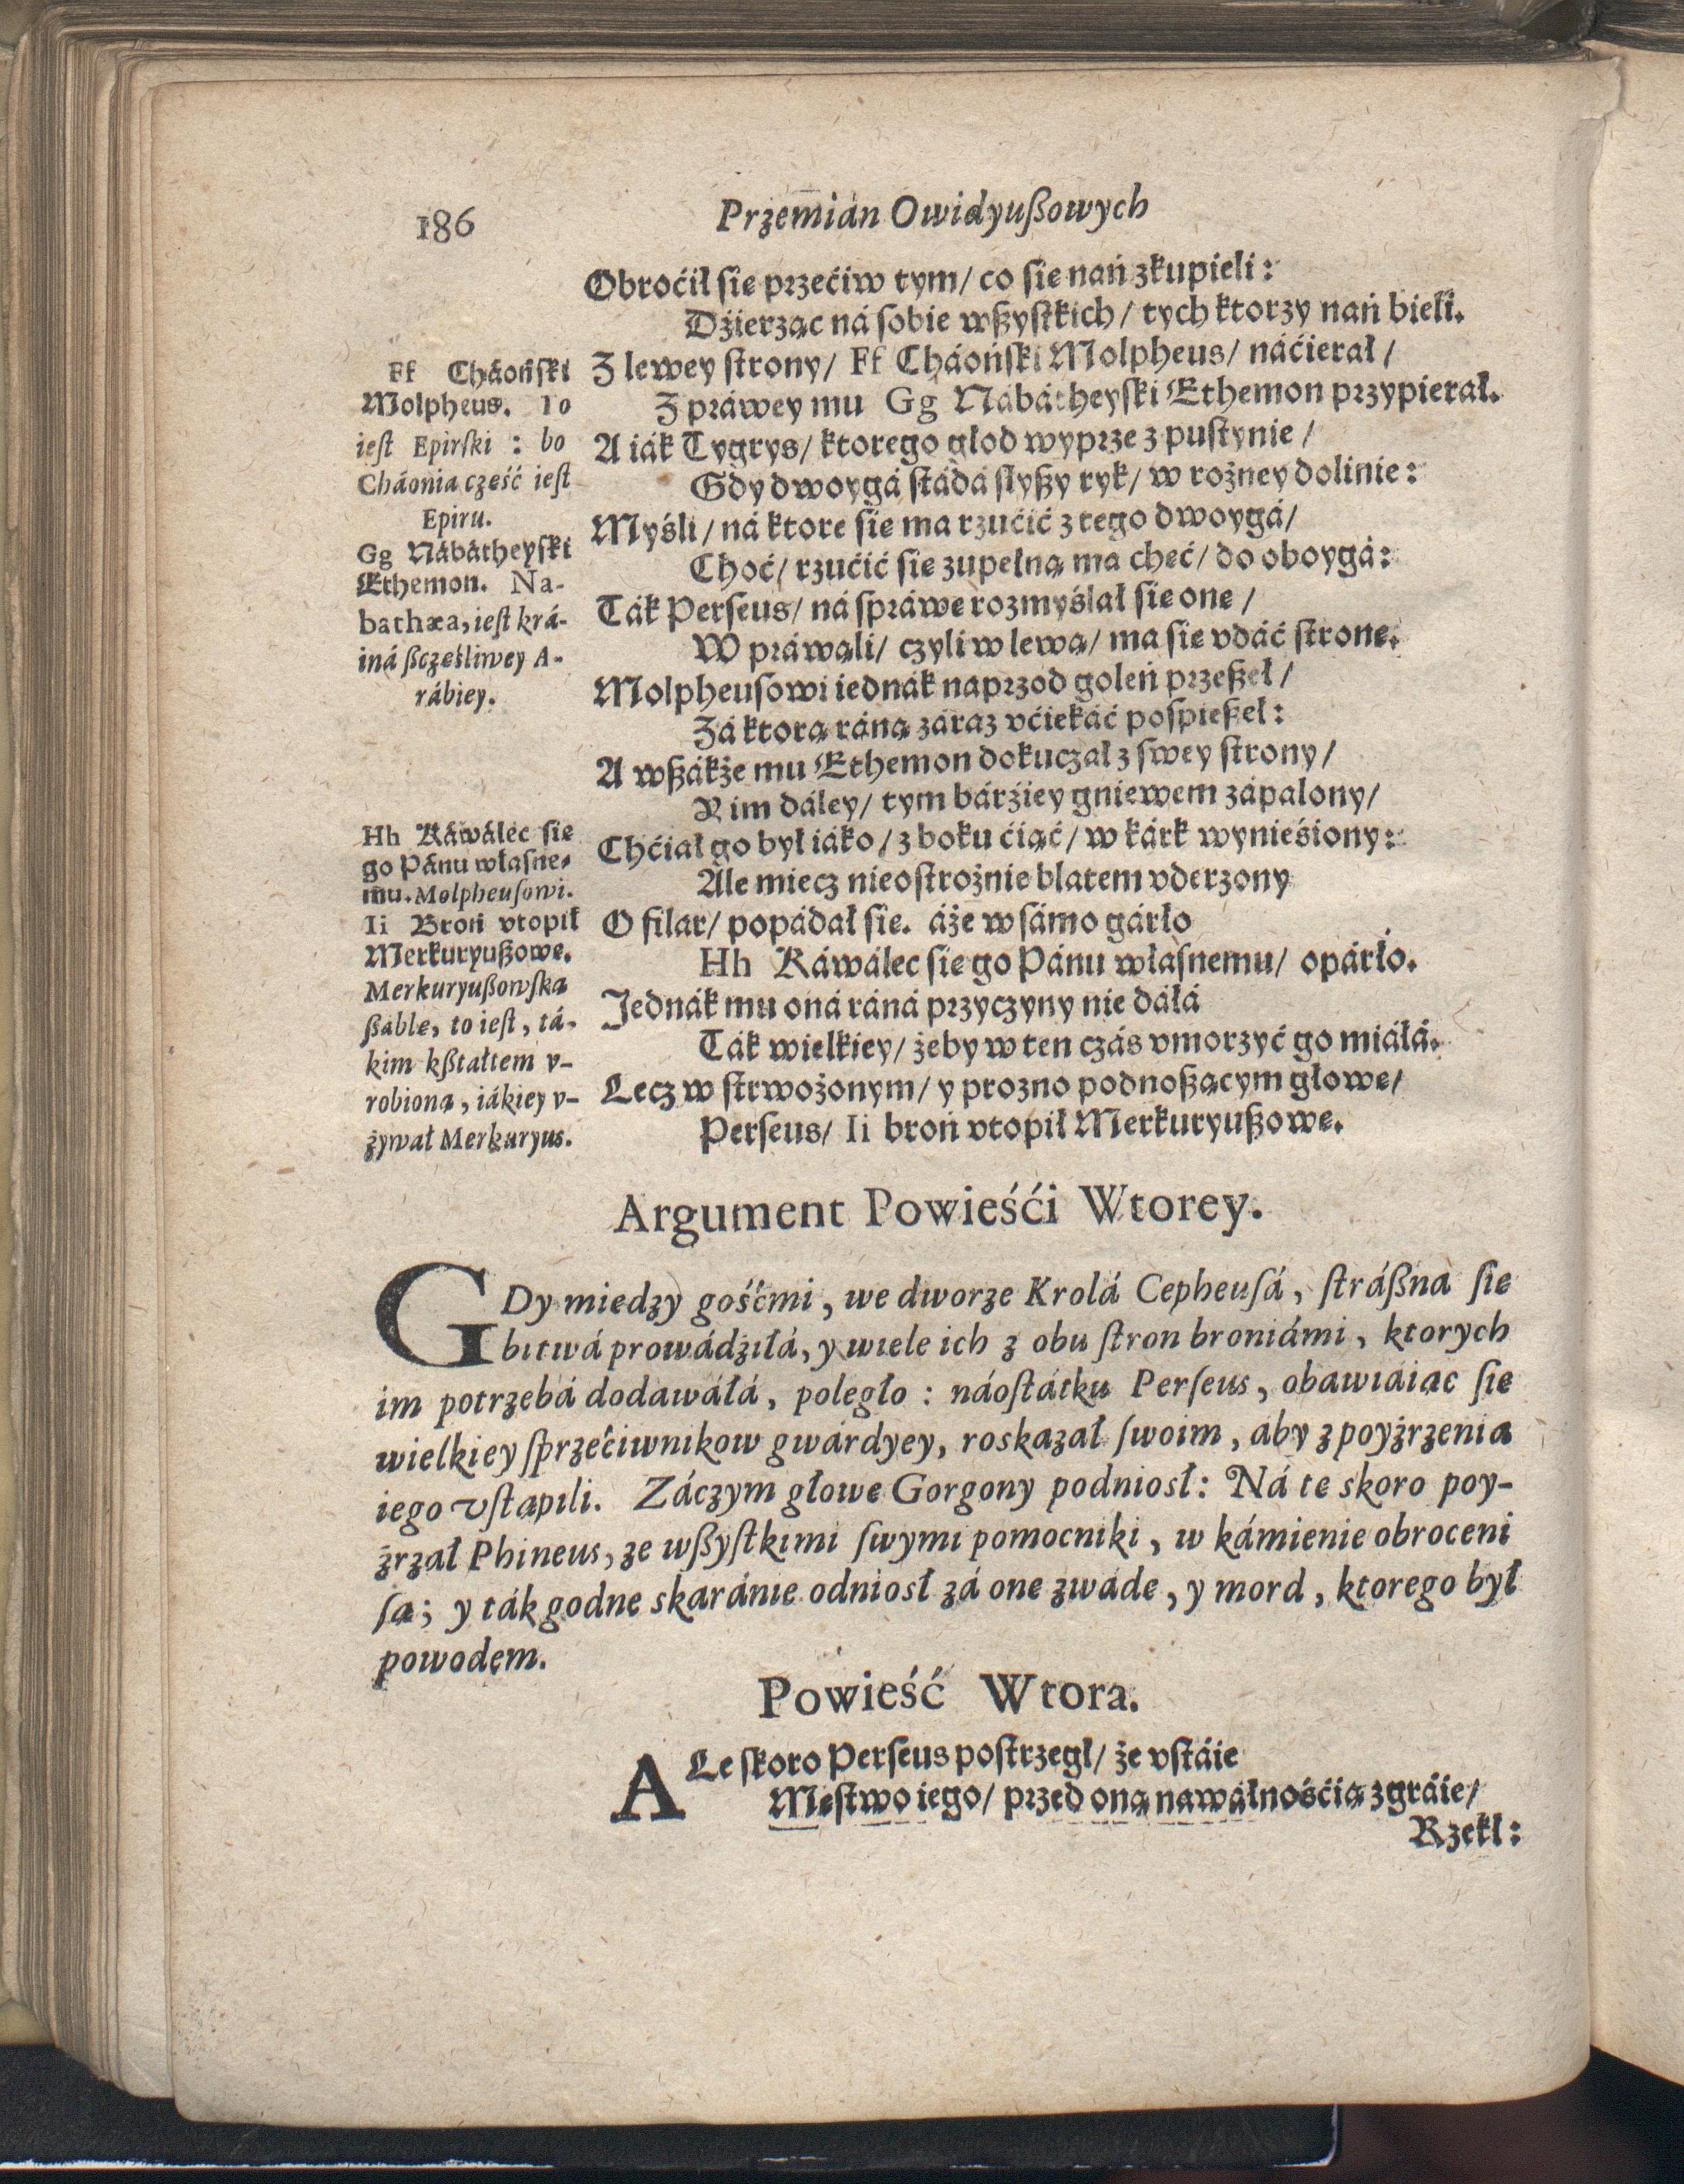 186
Przemián Owidyußowych
Obroćił ſie przećiw tym/ co ſie nań zkupieli:
Dźierząc ná ſobie wßyſtkich/ tych ktorzy nań bieli.
Z lewey ſtrony/ Ff Cháońſki Molpheus/ náćierał/
Z práwey mu Gg Nábátheyſki Ethemon przypierał.
A iák Tygrys/ ktorego głod wyprze z puſtynie/
Gdy dwoygá ſtádá ſłyßy ryk/ w rożney dolinie:
Myśli/ ná ktore ſie ma rzućić z tego dwoygá/
Choć/ rzućić ſie zupełną ma cheć/ do oboygá:
Ták Perſeus/ ná ſpráwe rozmyślał ſie one/
W práwąli/ czyli w lewą/ ma ſie vdáć ſtrone.
Molpheuſowi iednák naprzod goleń przeßeł/
Zá ktorą ráną záraz vćiekáć poſpießeł:
A wßákże mu Ethemon dokuczał z ſwey ſtrony/
Y im dáley/ tym bárźiey gniewem zápalony/
Chćiał go był iáko/ z boku ćiąć/ w kárk wynieśiony:
Ale miecz nieoſtrożnie blatem vderzony
O filar/ popádał ſie. áże w ſámo gárło
Hh Káwálec ſie go Pánu właſnemu/ opárło.
Jednák mu oná ráná przyczyny nie dáłá
Ták wielkiey/ żeby w ten czás vmorzyć go miáłá.
Lecz w ſtrwożonym/ y prozno podnoßącym głowe/
Perſeus/ Ii broń vtopił Merkuryußowe.
Ff Cháońſki
Molpheus. To
ieſt Epirſki : bo
Cháonia cześć ieſt
Epiru.
Gg Nábátheyſki
Ethemon. Na-
bathæa, ieſt krá-
iná ßcześliwey A-
rábiey.
Hh Káwálec ſie
go Pánu właſne-
mu. Molpheuſowi.
Ii Broń vtopił
Merkuryußowe.
Merkuryußowſka
ßáble, to ieſt, tá-
kim kßtałtem v-
robiona, iákiey v-
żywał Merkuryus.
Argument Powieśći Wtorey.
GDy miedzy gośćmi, we dworze Krolá Cepheuſá, ſtráßna ſie
bitwá prowádźiłá, y wiele ich z obu ſtron broniámi, ktorych
im potrzebá dodawáłá, poległo : náoſtátku Perſeus, obawiáiąc ſie
wielkiey ſprzećiwnikow gwárdyey, roskazał ſwoim, áby z poyźrzenia
iego vſtąpili. Záczym głowe Gorgony podniosł: Ná te skoro poy-
źrzał Phineus, ze wßyſtkimi ſwymi pomocniki, w kámienie obroceni
ſą; y ták godne skaránie odniosł zá one zwáde, y mord, ktorego był
powodem.
Powieść Wtora.
ALe ſkoro Perſeus poſtrzegł/ że vſtáie
Męſtwo iego/ przed oną nawáłnośćią zgráie/
Rzekł: